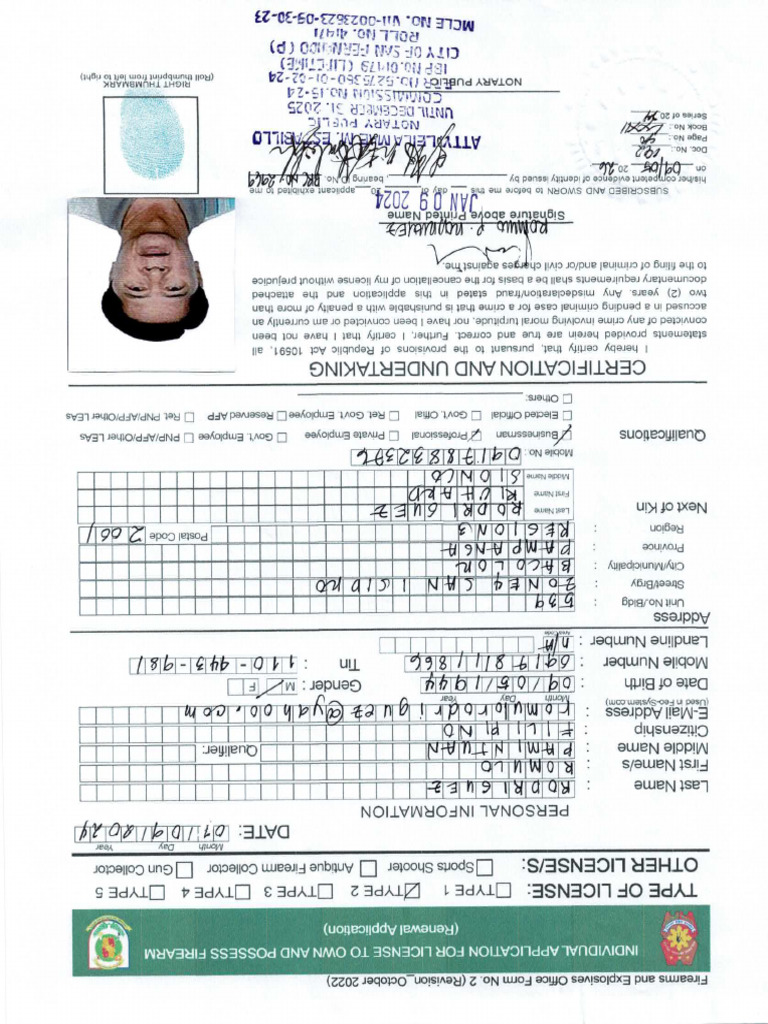 Firearms and Explosives Office Form No. 2 (Revision_October 2022)
INDIVIDUAL APPLICATION FOR LICENSE TO OWN AND POSSESS FIREARM
(Renewal Application)
TYPE OF LICENSE: TYPE 1 TYPE 2 TYPE 3 TYPE 4 TYPE 5
OTHER LICENSE/S: Sports Shooter Antique Firearm Collector Gun Collector
Month Day Year
DATE: 01/09/2024
PERSONAL INFORMATION
Last Name : RODRIGUEZ
First Name/s : ROMULO
Middle Name : PAMINTUAN Qualifier:
Citizenship : FILIPINO
E-Mail Address : romulorodriguez@yahoo.com
(Used in Feo-System.com) Month Day Year
Date of Birth : 09/05/1944 Gender : M F
Mobile Number : 09178111866 Tin : 110-443-981
Landline Number : n/a
Area Code
Address
Unit No./Bldg : 539
Street/Brgy : ZONE 4 SAN ISIDRO
City/Municipality : BACOLOR
Province : PAMPANGA
Region : REGION 3 Postal Code 2001
Next of Kin
Last Name RODRIGUEZ
First Name RICHARD
Middle Name SIONCO
Mobile No.: 09178832376
Qualifications
Businessman Professional Private Employee Govt. Employee PNP/AFP/Other LEAs
Elected Official Govt. Offial Ret. Govt. Employee Reserved AFP Ret. PNP/AFP/Other LEAs
Others:
CERTIFICATION AND UNDERTAKING
I hereby certify that, pursuant to the provisions of Republic Act 10591, all
statements provided herein are true and correct. Further, I certify that I have not been
convicted of any crime involving moral turpitude, nor have been convicted or am currently an
accused in a pending criminal case for a crime that is punishable with a penalty of more than
two (2) years. Any misdeclaration/fraud stated in this application and the attached
documentary requirements shall be a basis for the cancellation of my license without prejudice
to the filing of criminal and/or civil charges against me.
ROMULO P. RODRIGUEZ
Signature above Printed Name
JAN 09 2024
SUBSCRIBED AND SWORN to before me this day of 20 applicant exhibited to me
his/her competent evidence of identity issued by bearing ID No.
on 20
Doc. No.:
Page No.:
Book No.:
Series of 20
ATTY.
NOTARY PUBLIC
UNTIL DECEMBER 31, 2025
COMMISSION NO.15-24
NOTARY PUBLIC
CITY OF SAN FERNANDO (P)
ROLL NO. 41471
MCLE NO. VII-0023623-09-30-23
RIGHT THUMBMARK
(Roll thumbprint from left to right)